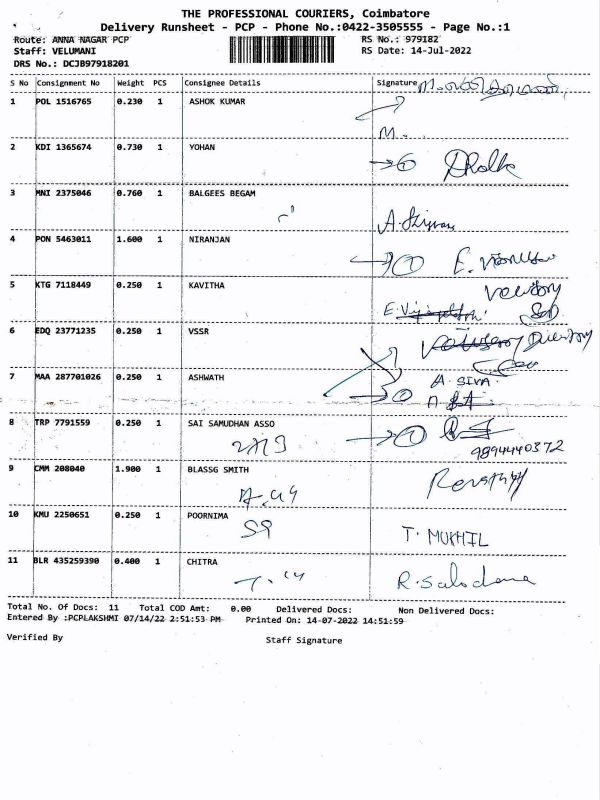 THE PROFESSIONAL COURIERS, Coimbatore
Delivery Runsheet - PCP - Phone No.:0422-3505555 - Page No.:1
Route: ANNA NAGAR PCP RS No.: 979182
Staff: VELUMANI RS Date: 14-Jul-2022
DRS No.: DCJB97918201
S No Consignment No Weight PCS Consignee Details Signature
1 POL 1516765 0.230 1 ASHOK KUMAR
M.
2 KDI 1365674 0.730 1 YOHAN
3 MNI 2375046 0.760 1 BALGEES BEGAM
4 PON 5463011 1.600 1 NIRANJAN
5 KTG 7118449 0.250 1 KAVITHA
6 EDQ 23771235 0.250 1 VSSR
7 MAA 287701026 0.250 1 ASHWATH A. SIVA.
8 TRP 7791559 0.250 1 SAI SAMUDHAN ASSO
9894440372
9 CMM 208040 1.900 1 BLASSG SMITH
10 KMU 2250651 0.250 1 POORNIMA
T. MUKHIL
11 BLR 435259390 0.400 1 CHITRA
Total No. Of Docs: 11 Total COD Amt: 0.00 Delivered Docs: Non Delivered Docs:
Entered By :PCPLAKSHMI 07/14/22 2:51:53 PM Printed On: 14-07-2022 14:51:59
Verified By Staff Signature